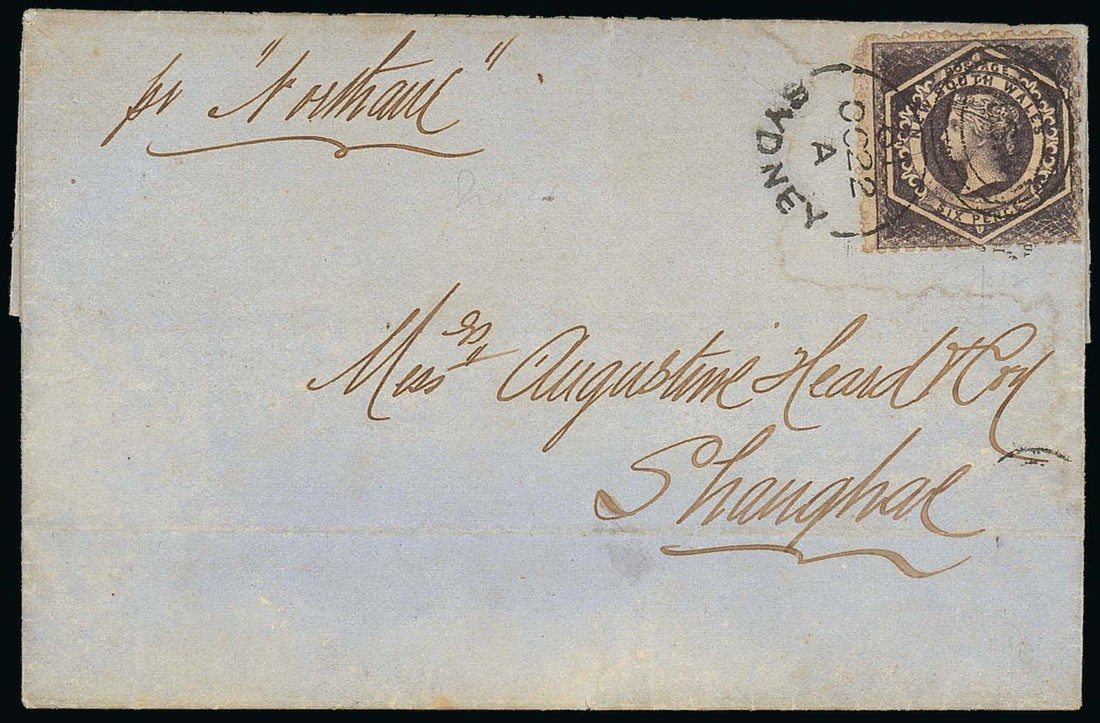 pr "Northam"
SYDNEY
A
OC 22
61
POSTAGE
NEW SOUTH WALES
SIX PENCE
Messrs Augustine Heard & Coy
Shanghae